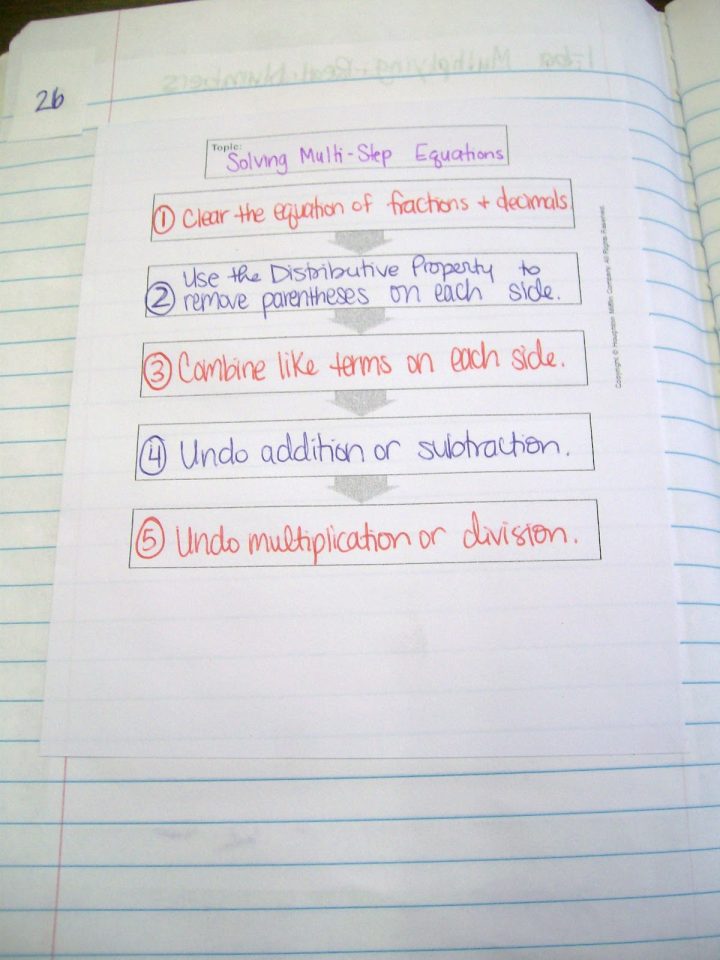 1-6a Multiplying Real Numbers
26
Topic:
Solving Multi-Step Equations
① Clear the equation of fractions + decimals
② Use the Distributive Property to
remove parentheses on each side.
③ Combine like terms on each side.
④ Undo addition or subtraction.
⑤ Undo multiplication or division.
Copyright © Houghton Mifflin Company. All Rights Reserved.